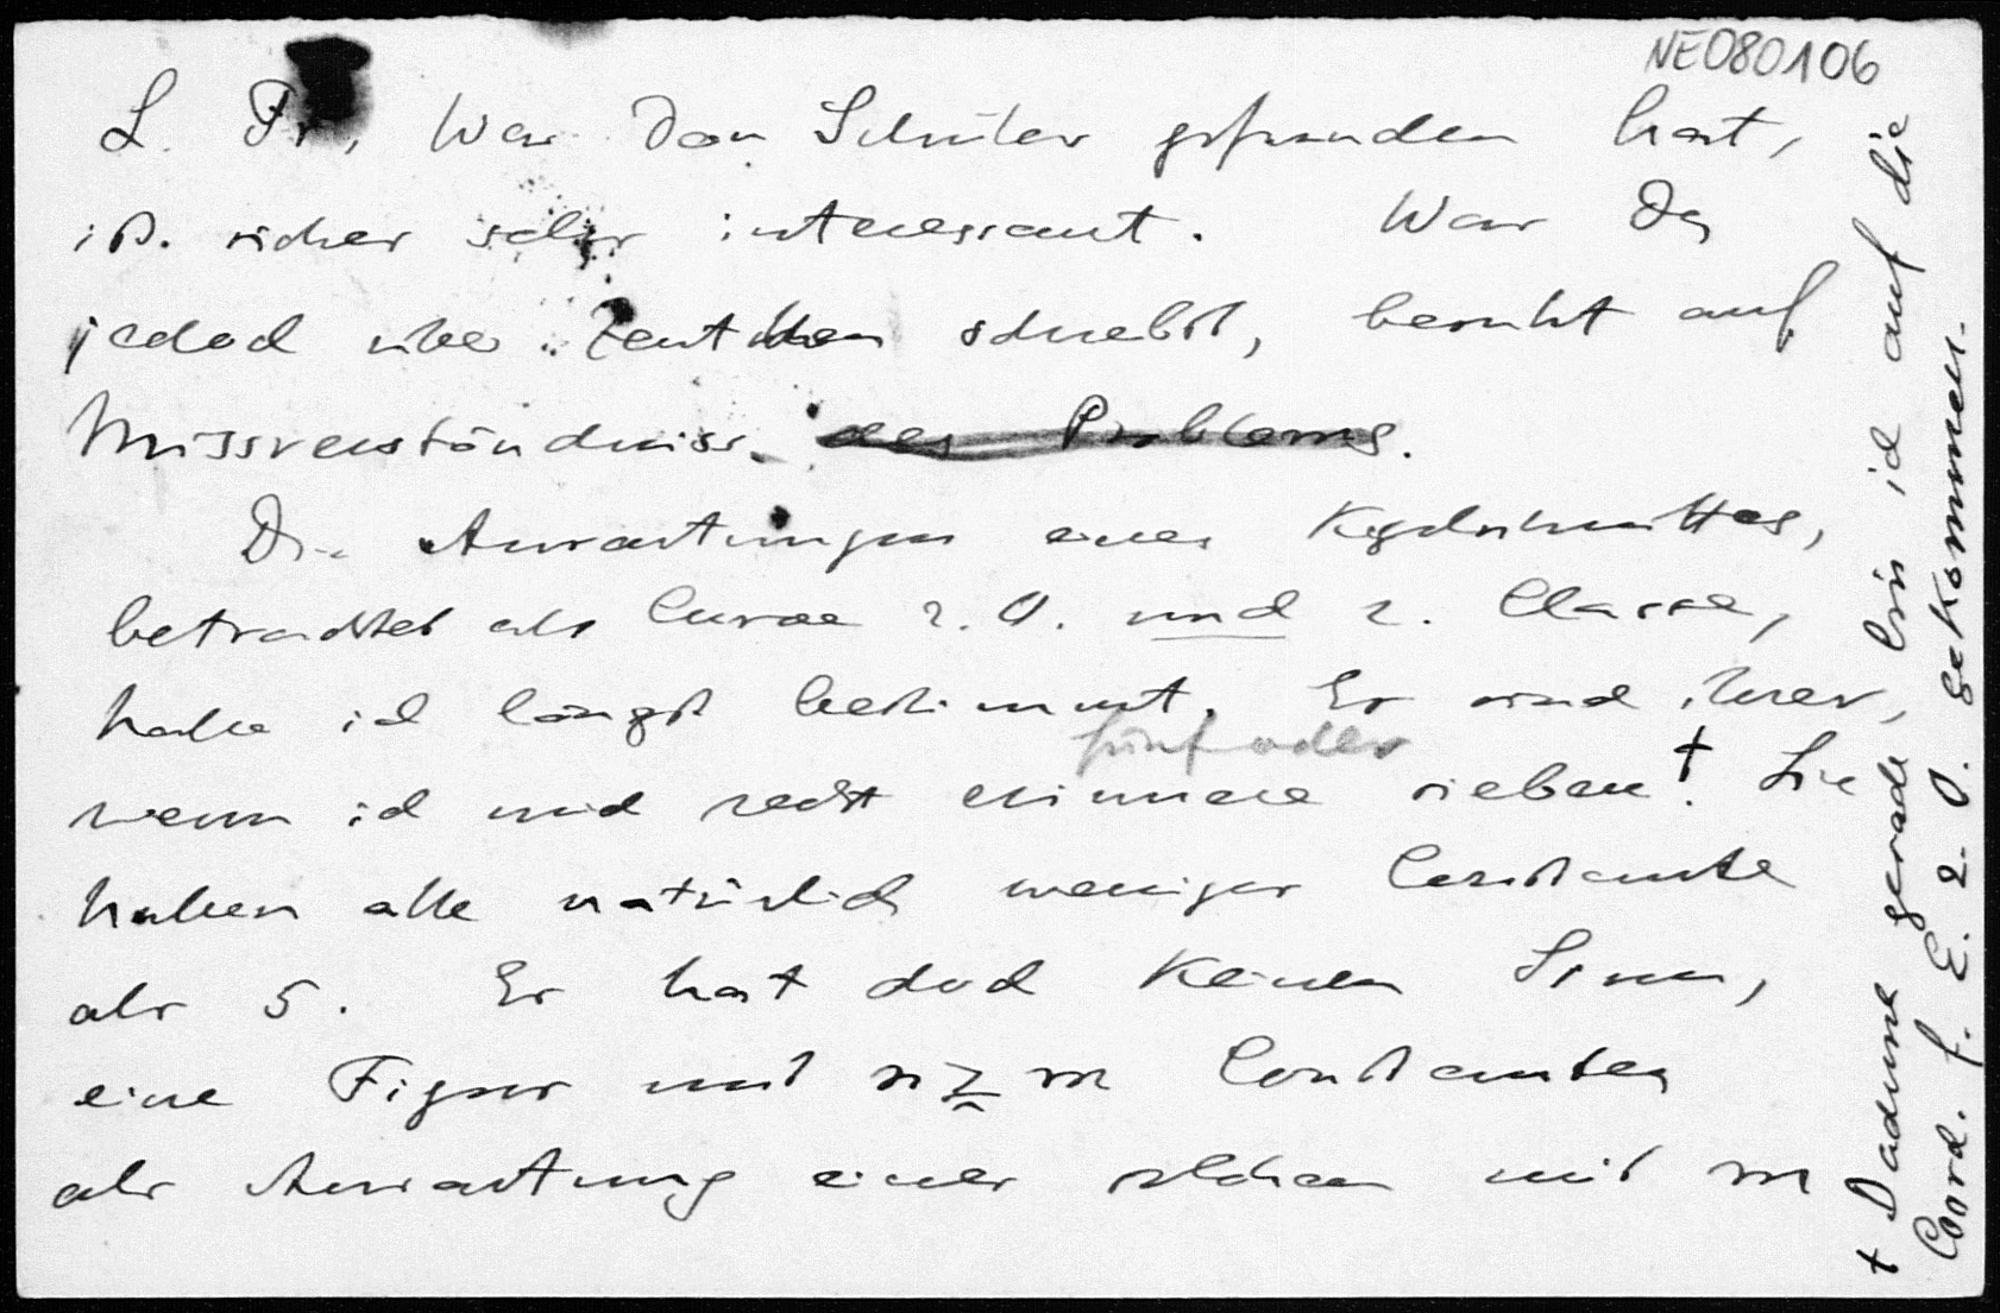 NE080106
L. Fr, Was Dein Schüler gefunden hat,
ist sicher sehr interessant. Was Du
jedoch über schreibst, beruht auf
Missverständniss. des Problems.
Die Ausartungen eines Kegelschnittes,
betrachtet als Curve 2. O. und 2. Classe,
habe ich längst bestimmt. Es sind ihrer,
fünf oder
wenn ich mich recht erinnere sieben†. Sie
haben alle natürlich weniger Constante
als 5. Es hat doch keinen Sinn,
eine Figur mit n ≧ m Constanten
als Ausartung einer solchen mit m
† Dadurch gerade, bin ich auf die
Coord. f. E. 2. O. gekommen.